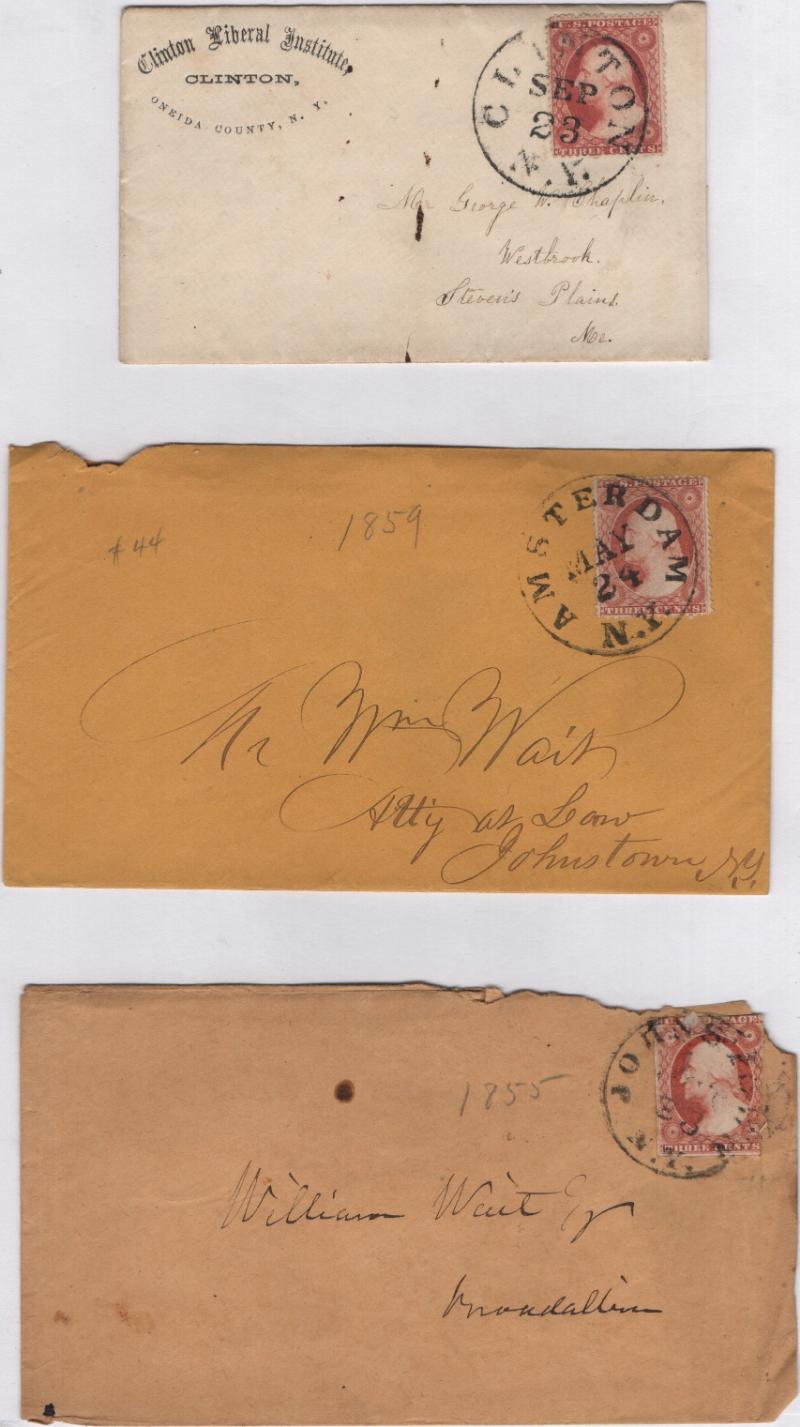 Clinton Liberal Institute,
CLINTON,
ONEIDA COUNTY, N. Y.
U.S. POSTAGE
THREE CENTS
CLINTON
SEP
23
N.Y.
Mr George W. Chaplin,
Westbrook.
Steven's Plains.
Me.
#44
1859
U.S. POSTAGE
THREE CENTS
AMSTERDAM
MAY
24
N.Y.
Mr Wm Wait
Atty at Law
Johnstown N.Y.
1855
U.S. POSTAGE
THREE CENTS
N.Y.
William Wait Esq
Broadalbin